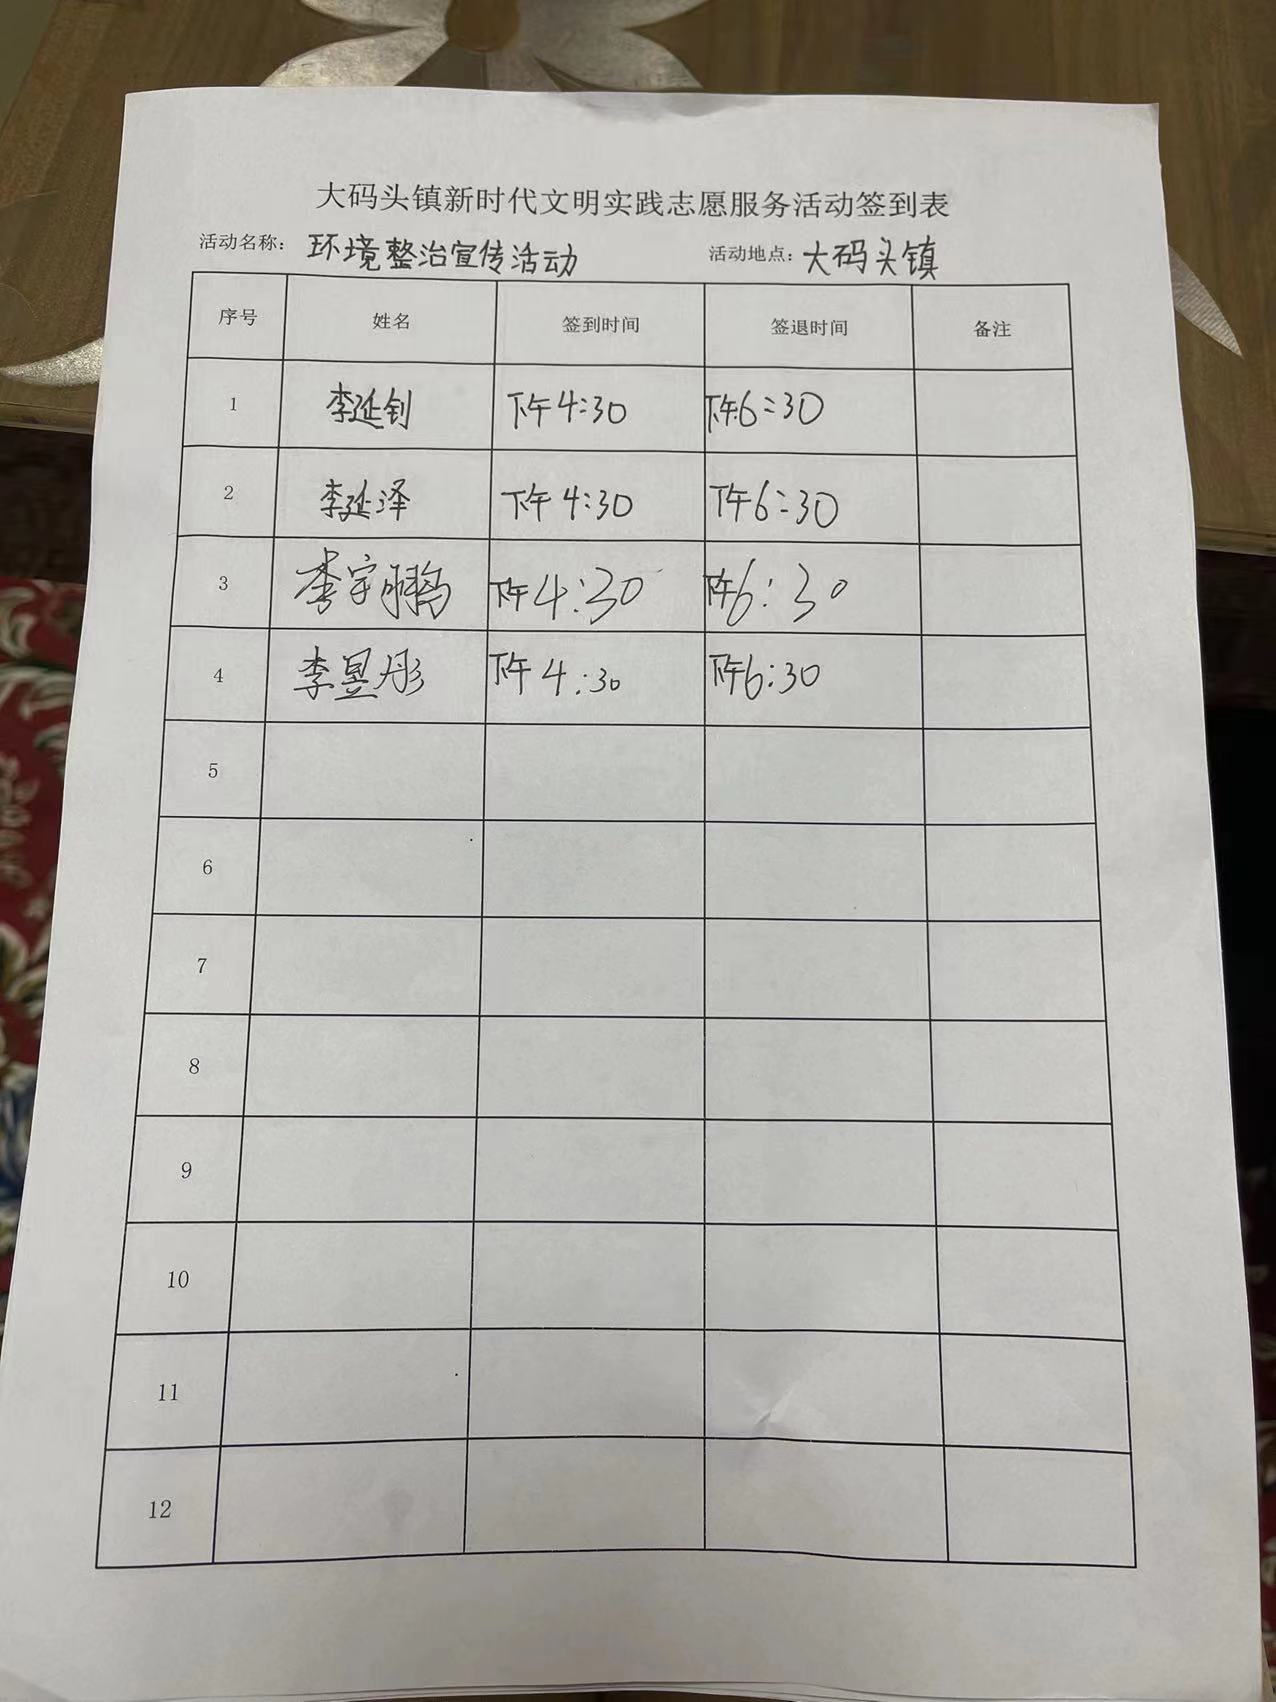 大码头镇新时代文明实践志愿服务活动签到表
活动名称： 环境整治宣传活动 活动地点：大码头镇
序号 姓名 签到时间 签退时间 备注
1 李延钊 下午4:30 下午6:30
2 李延泽 下午4:30 下午6:30
3 李宇鹏 下午4:30 下午6:30
4 李昱彤 下午4:30 下午6:30
5
6
7
8
9
10
11
12